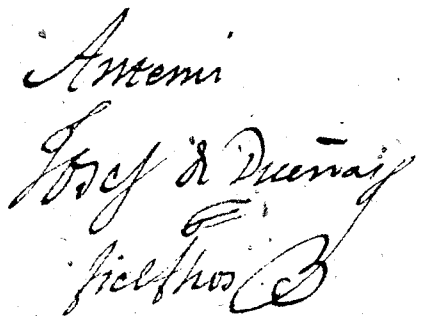 Antemi
Josef de Dueñas
fiel fhos